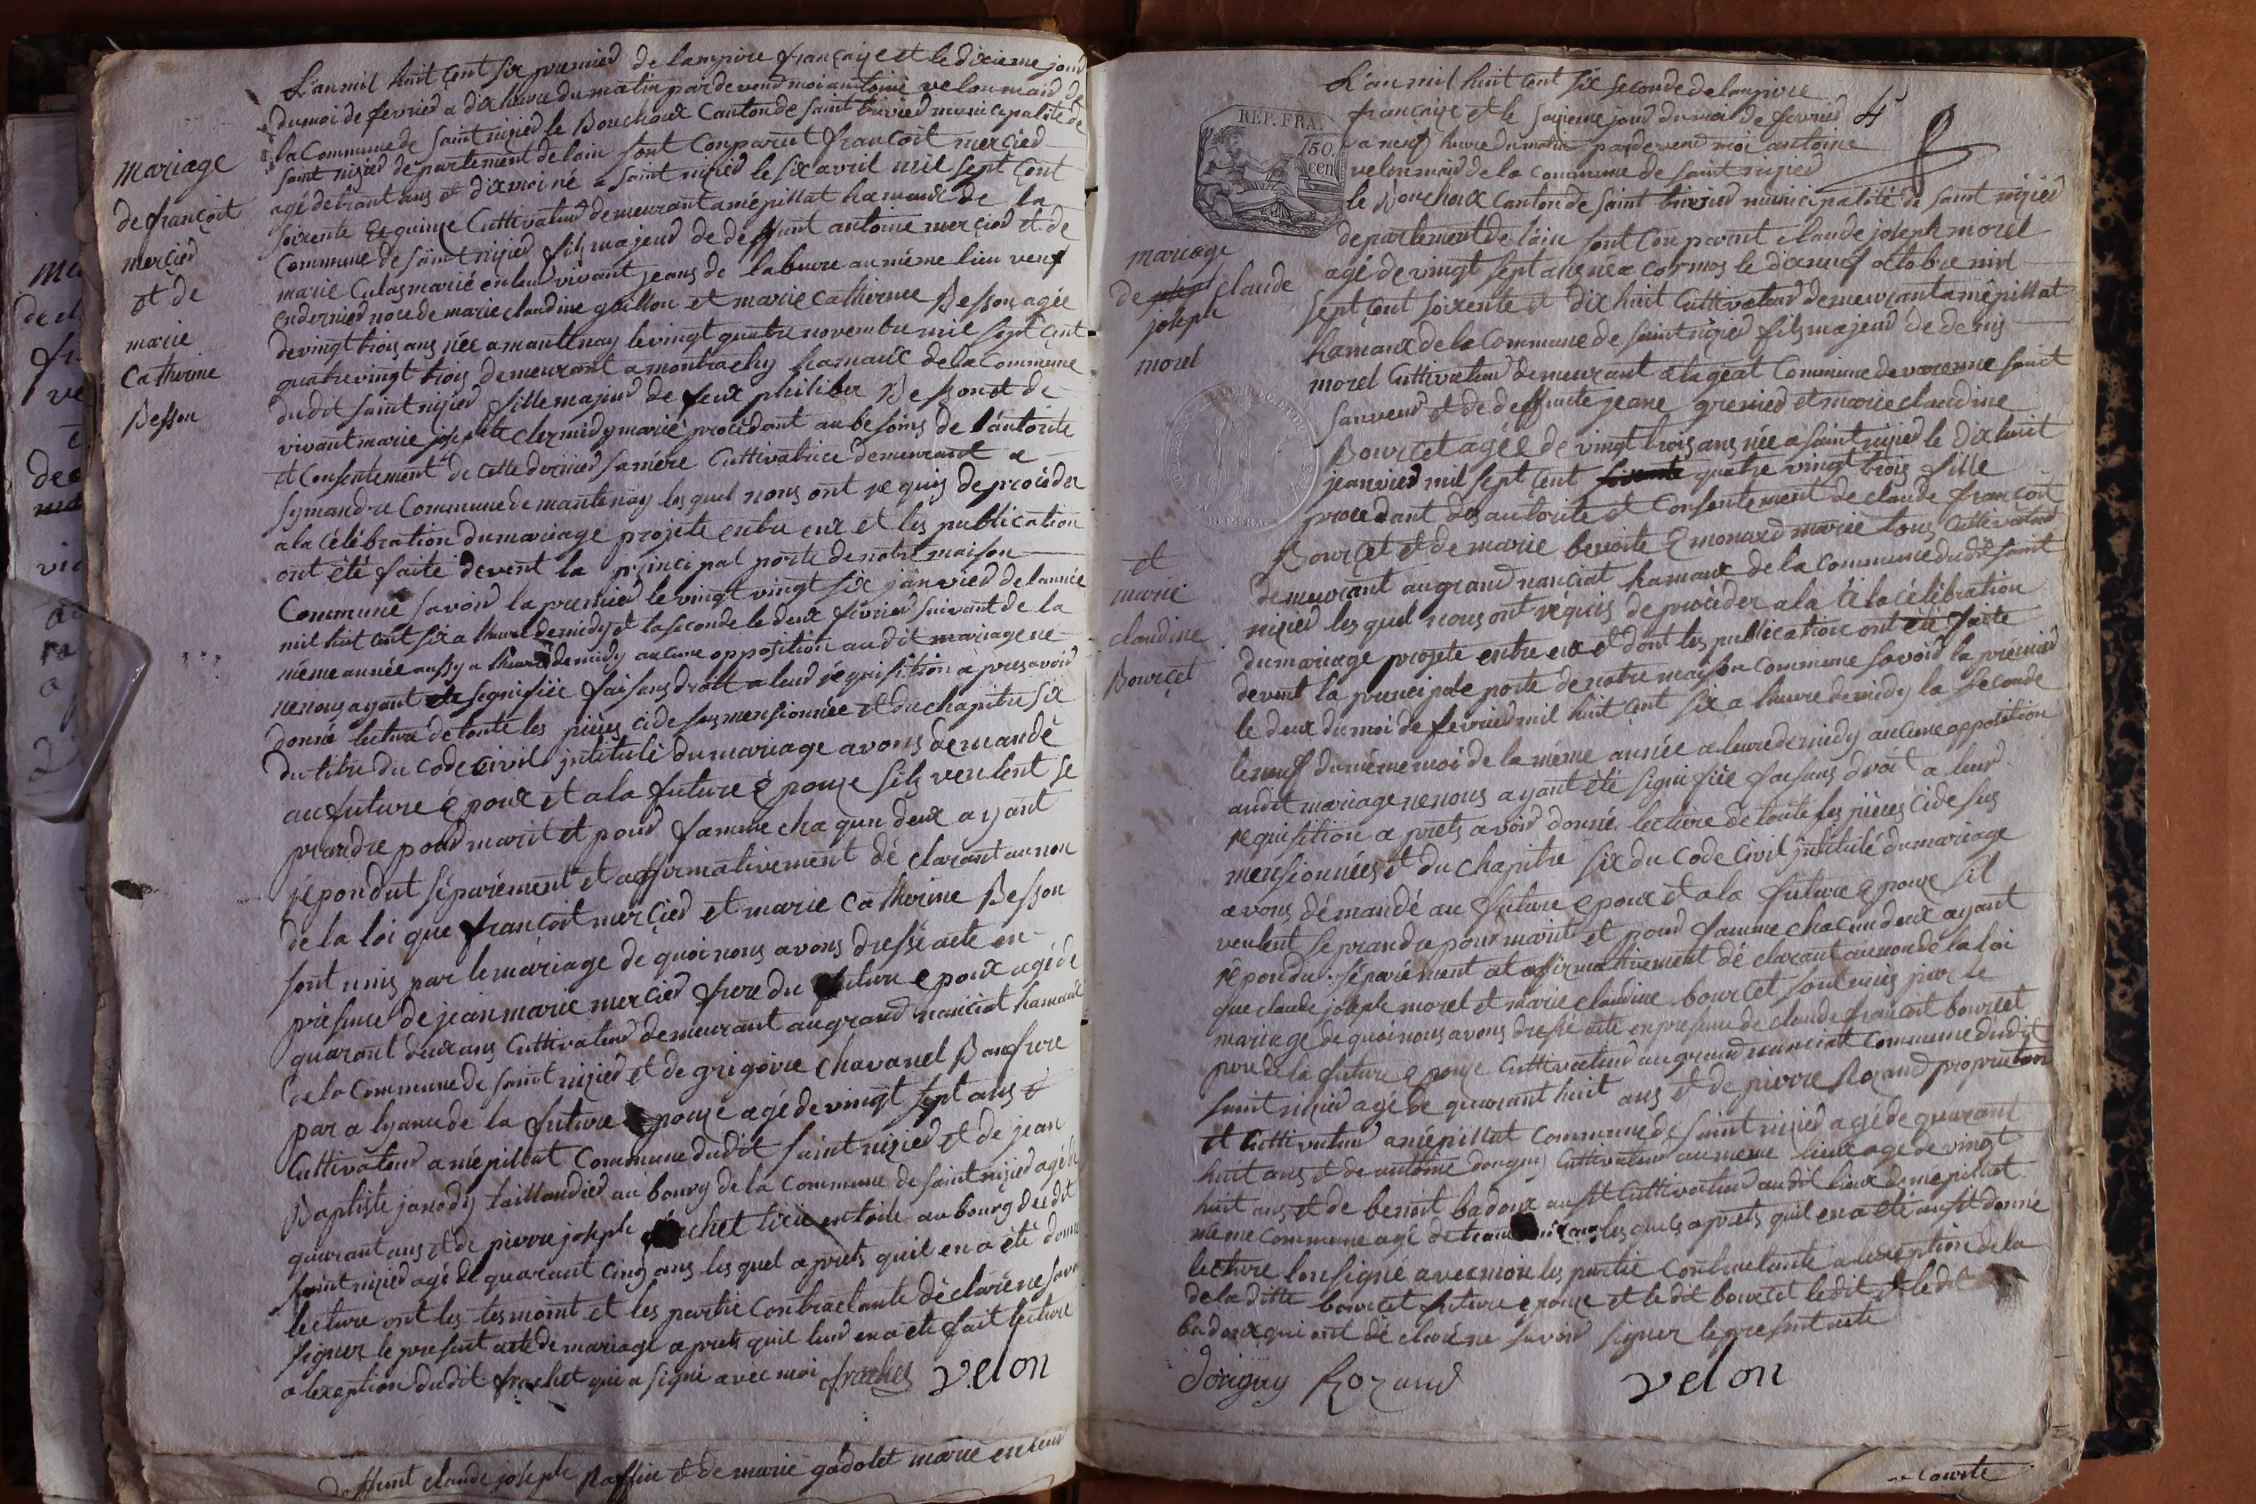 L'an mil huit cent six premier de lampire française et le dixieme jour
du moi de fevrier a dix heure du matin par devend moi antoine velon maire de
la Commune de Saint nizier le Bouchoux Canton de Saint trivier municipalité de
Saint nizier departement de lain sont Conparut françoit mercier
agé de trant ans et dix moi né a Saint nizier le six avril mil sept cent
soixente et quinze Cultivateur demeurant a mépillat hamaux de la
Commune de Saint nizier fils majeur de deffunt antoine mercier et de
marie Culas marié en leur vivant jeans de labeure au même lieu veuf
en dernier noce de marie claudine guillon et marie catherine Besson agée
de vingt trois ans née a mantenay le vingt quatre novembre mil sept cent
quatre vingt trois demeurant a montrachy hamaux de la Commune
dudit Saint nizier fille majeur de feux philiber Besson et de
vivant marie josephte clermidy marié procédant au besoins de l'autorité
et Consentement de cette dernier sa mére Cultivatrice demeurant a
Symandre Commune de mantenay les quel nous ont requis de procéder
a la célébration du mariage projeté entre eux et les publication
ont été faite devent la principal porte de notre maison
Commune savoir la premier le vingt vingt six janvier de l'année
mil huit cent six a lheure de midy et la seconde le deux février suivant de la
même année aussy a lheure de midy aucune opposition audit mariage ne
ne nous ayant ete signifiée faisans droit a leur réquisition a pres avoir
donné lecture de toute les pièces ci de sus mensionnée et du chapitre six
du titre du code civil intitulé du mariage avons demandé
au future époux et a la future épouze sils veulent se
prandre pour marit et pour famme cha qun deux ayant
répondut séparément et affirmativement dé clarant au non
de la loi que françoit mercier et marie catherine Besson
sont unis par le mariage de quoi nous avons dressé acte en
présence de jean marie mercier frere du future époux agé de
quarant deux ans Cultivateur demeurant au grand nanciat hamaux
de la Commune de saint nizier et de grigoire chavanel Baux frere
par alyance de la future épouze agé de vingt sept ans et
Cultivateur a mépillat Commune dudit saint nizier et de jean
Baptiste janody taillandier au bourg de la Commune de saint nizier agé de
quarant ans et de pierre joseph frachet tixie en toile au bourg de dit
saint nizier agé de quarant cinq ans les quel a prets quil en a été donné
lecture ont les tesmoint et les partie Contractante déclaré ne savoir
signer le présent acte de mariage a prets quil leur en a été fait lecture
a lexception dudit frachet qui a signé avec moi frachet velon
mariage
de françoit
mercier
et de
marie
Catherine
Besson
deffunt claude joseph Raffin et de marie gadolet marié en leur
L'an mil huit cent six seconde de lampire
française et le saizieme jour du moi de fevrier
a neuf heure du matin par devend moi antoine
velon maire de la Commune de saint nizier
le Bouchoux Canton de saint trivier municipalité de saint nizier
departement de l'ain sont Conparut claude joseph morel
agé de vingt sept ans né a cormos le dix neuf octobre mil
sept cent soixente et dix huit Cultivateur demeurant a mépillat
hamaux de la Commune de saint nizier fils majeur de denis
morel Cultivateur demeurant a la géat Commune de varenne saint
sauveur et de deffunte jeane grenier et marie claudine
Bourcet agée de vingt trois ans née a saint nizier le dix huit
jeanvier mil sept cent quatre vingt trois fille
procedant des autorite et Consentement de claude françoit
Bourcet et de marie benoite Emonard marié tous Cultivateur
demeurant au grand nanciat hamaux de la Commune dudit saint
nizier les quel nous ont réquis de procéder a la célébration
du mariage projeté entre eux et dont les publication ont été faite
devent la principale porte de notre maison Commune savoir la prémier
le deux du moi de fevrier mil huit cent six a lheure de midy la seconde
le neuf du même moi de la même année a leure de midy aucune opposition
audit mariage ne nous ayant été signifiée faisans droit a leur
requisition a prets avoir donné lecture de toute les pièces ci de sus
mensionnées et du chapitre six du code civil intitulé du mariage
avons démandé au future époux et a la future épouze sil
veulent se prandre pour marit et pour famme chacun deux ayant
répondu séparément et affirmativement dé clarant au non de la loi
que claude joseph morel et marie claudine bourcet sont unis par le
mariage de quoi nous avons dressé acte en présence de claude françoit bourcet
pere de la future épouze Cultivateur au grand nanciat Commune dudit
saint nizier agé de quarant huit ans et de pierre Rozand proprietair
et Cultivateur a mépillat Commune de saint nizier agé de quarant
huit ans et de antoine Cultivateur au meme lieux agé de vingt
huit ans et de benoit badoux aussit Cultivateur audit lieux de mepillat
même Commune agé de les quels a prets quil en a été aussit donné
lecture lon signé avec moi les partie Contractante a lexception de la
de la ditte bourcet future épouze et le dit bourcet le dit et le dit
badoux qui ont dé claré ne savoir signer le present acte
dorigny Rozand velon
mariage
de claude
joseph
morel
et
marie
claudine
Bourcet
REP. FRA.
50
cen
4